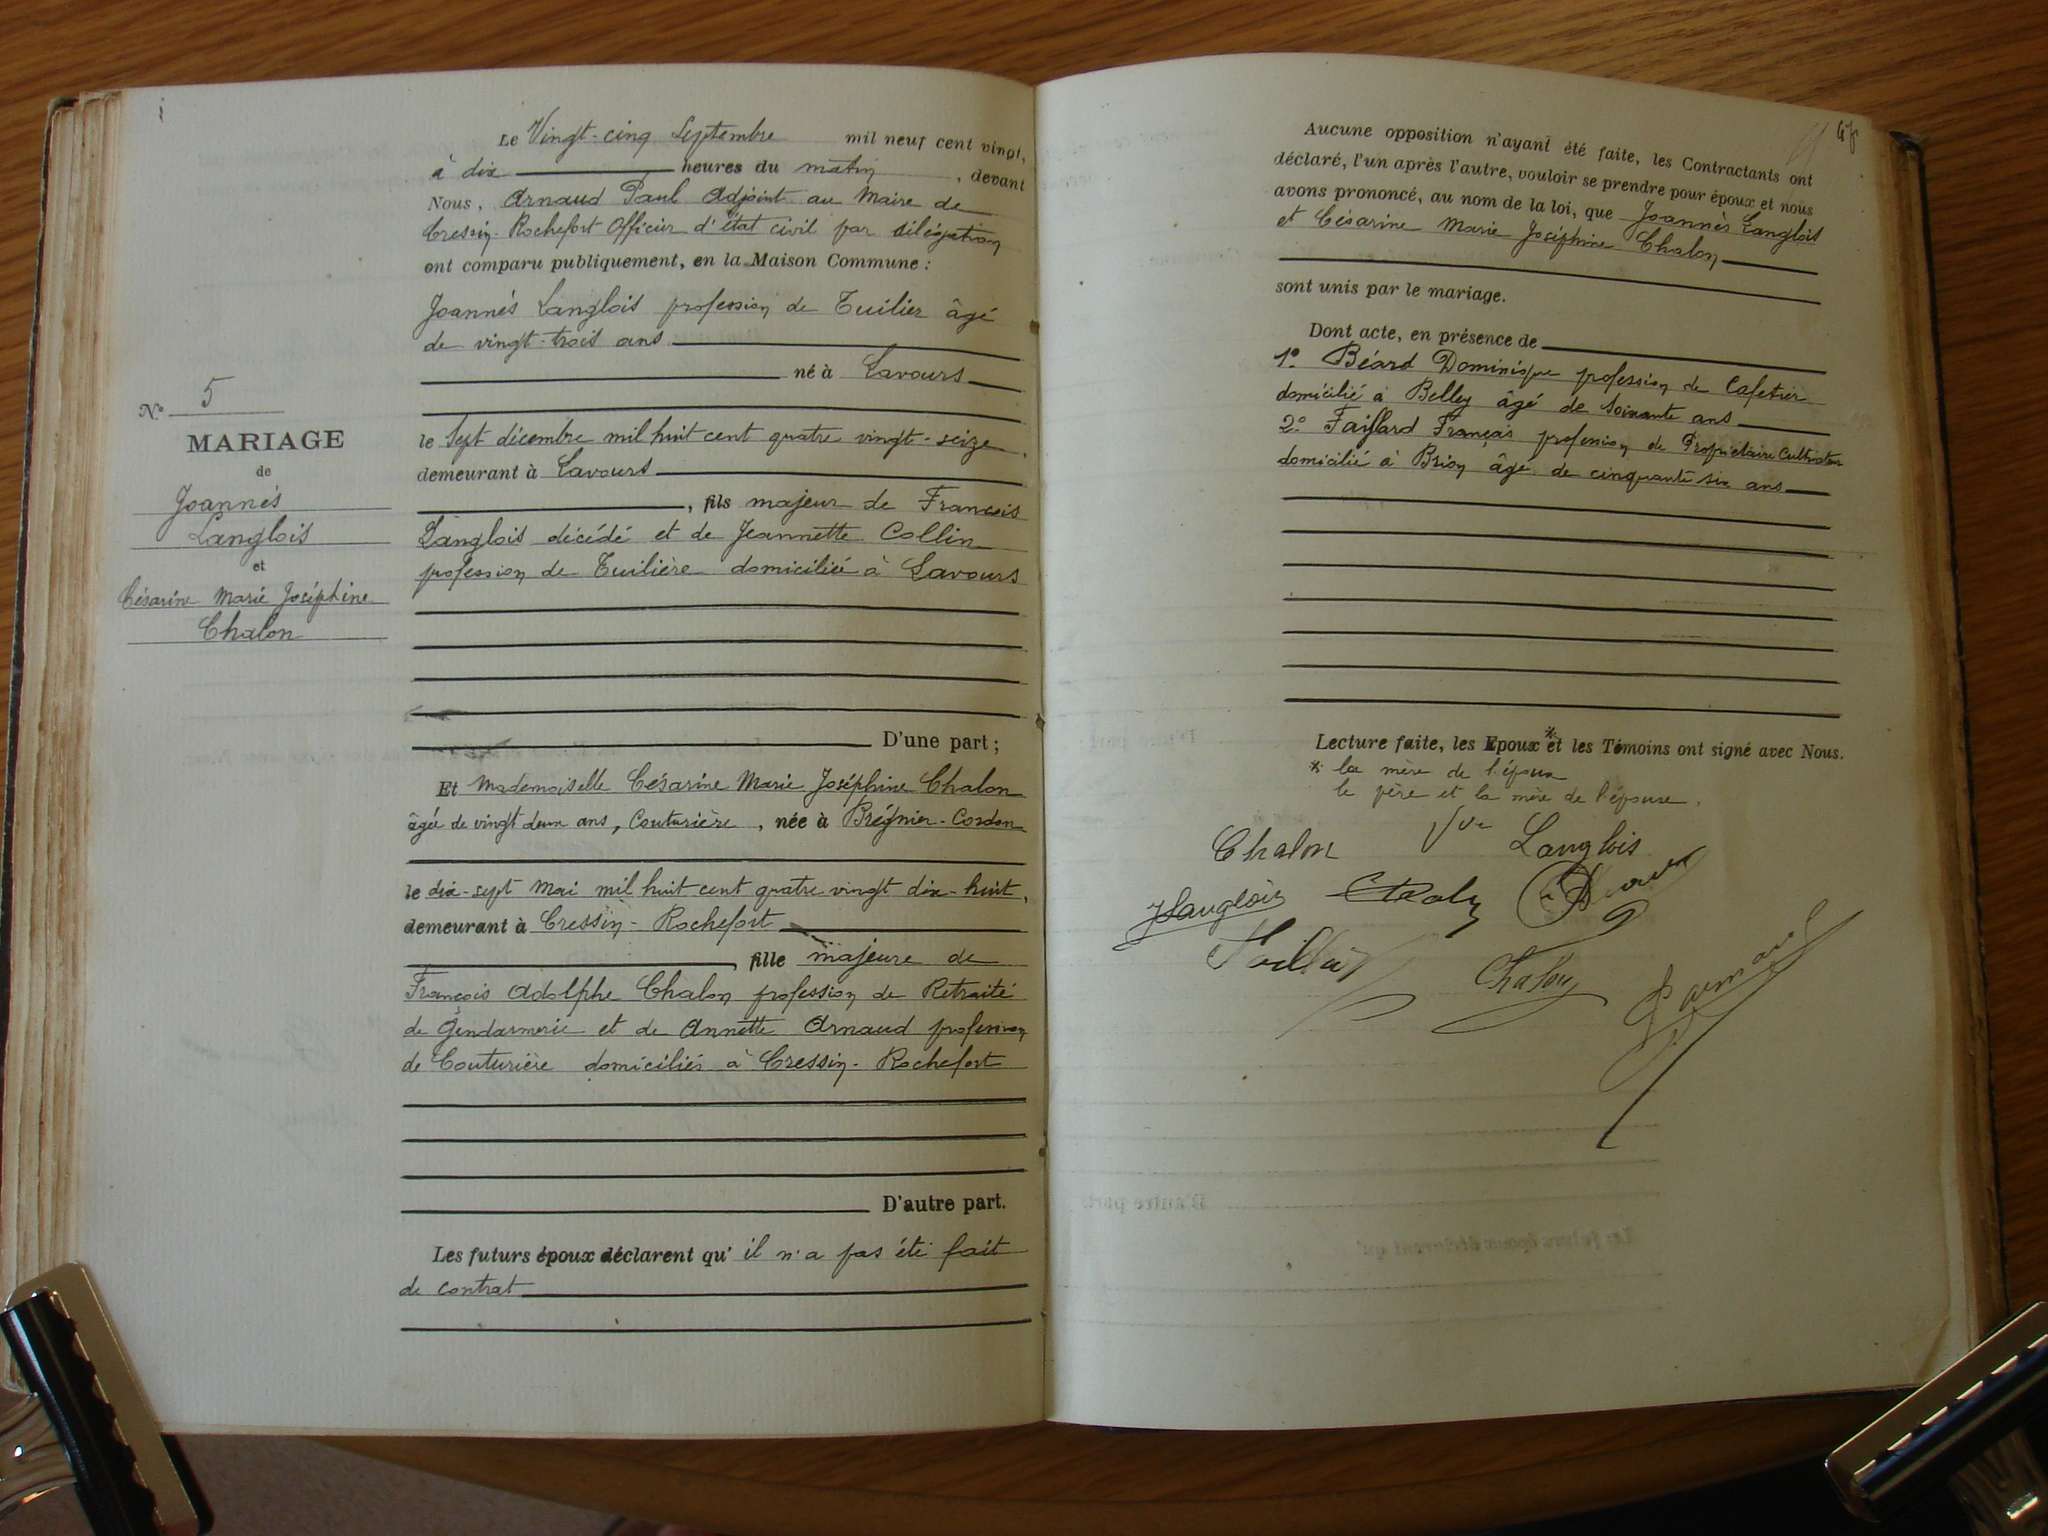 N° 5
MARIAGE
de
Joannès
Langlois
et
Césarine Marie Joséphine
Chalon
Le Vingt-cinq Septembre mil neuf cent vingt,
à dix heures du matin, devant
Nous, Arnaud Paul Adjoint au Maire de
Cressin-Rochefort Officier d'état civil par délégation
ont comparu publiquement, en la Maison Commune :
Joannès Langlois profession de Tuilier âgé
de vingt-trois ans
né à Lavours
le Sept décembre mil huit cent quatre vingt-seize
demeurant à Lavours
, fils majeur de François
Langlois décédé et de Jeannette Collin
profession de Tuilière domiciliée à Lavours
D'une part ;
Et Mademoiselle Césarine Marie Joséphine Chalon
âgée de vingt deux ans, Couturière, née à Brégnier-Cordon
le dix-sept Mai mil huit cent quatre vingt dix-huit,
demeurant à Cressin-Rochefort
, fille majeure de
François Adolphe Chalon profession de Retraité
de Gendarmerie et de Annette Arnaud profession
de Couturière domiciliés à Cressin-Rochefort
D'autre part.
Les futurs époux déclarent qu' il n'a pas été fait
de contrat
Aucune opposition n'ayant été faite, les Contractants ont
déclaré, l'un après l'autre, vouloir se prendre pour époux et nous
avons prononcé, au nom de la loi, que Joannès Langlois
et Césarine Marie Joséphine Chalon
sont unis par le mariage.
Dont acte, en présence de
1° Béard Dominique profession de Cafetier
domicilié à Belley âgé de soixante ans
2° Faillard François profession de Propriétaire Cultivateur
domicilié à Brion âgé de cinquante six ans
Lecture faite, les Epoux * et les Témoins ont signé avec Nous.
* la mère de l'époux
le père et la mère de l'épouse.
Chalon Vve Langlois
J Langlois Chalon
Chalon